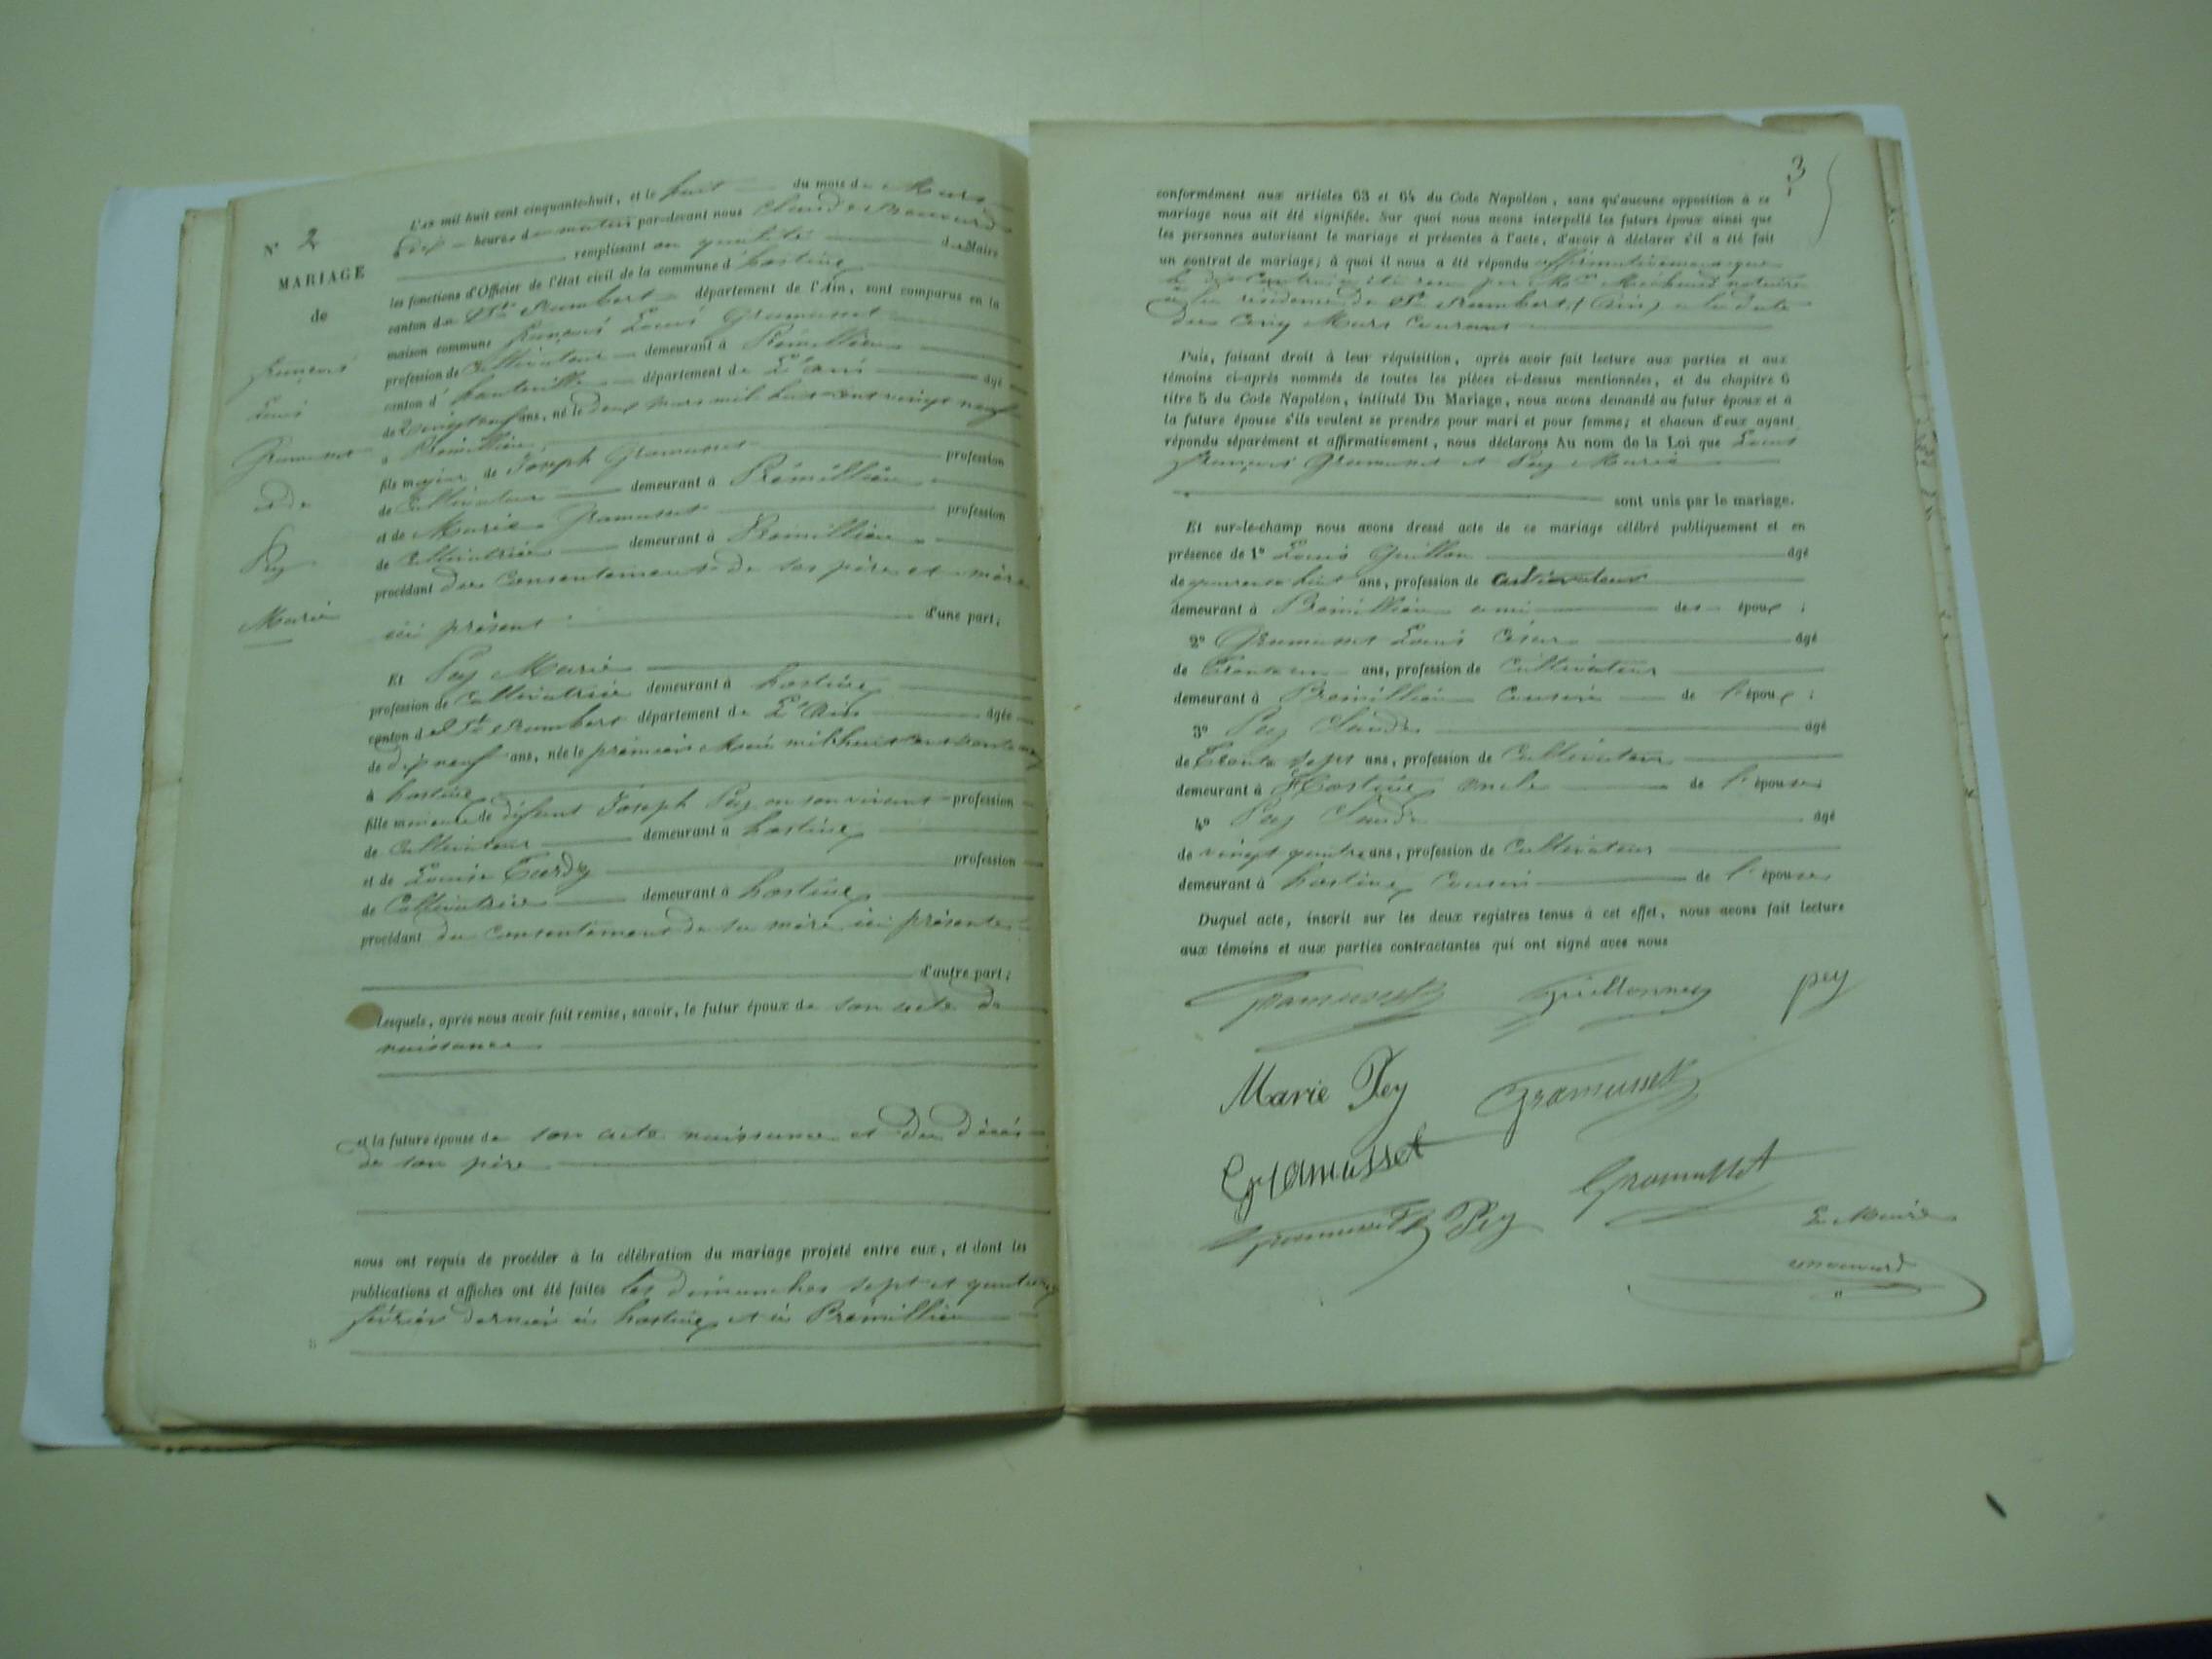 N° 2
MARIAGE
de
françois
Louis
Gramusset
et de
Pey
Marie
L'an mil huit cent cinquante-huit, et le huit du mois de Mars
à dix heures du matin par-devant nous Claude
remplissant en qualité de Maire
les fonctions d'Officier de l'état civil de la commune d'hostiaz
canton de St Rambert département de l'Ain, sont comparus en la
maison commune françois Louis Gramusset
profession de Cultivateur demeurant à Prémillieu
canton d'hauteville département de L'ain âgé
de vingt neuf ans, né le deux mars mil huit cent vingt neuf
à Prémillieu
fils majeur de Joseph Gramusset profession
de Cultivateur demeurant à Prémillieu
et de Marie Gramusset profession
de Cultivatrice demeurant à Prémillieu
procédant du Consentement de ses père et mère
ici présent d'une part;
Et Pey Marie
profession de Cultivatrice demeurant à hostiaz
canton de St Rambert département de L'Ain âgée
de dix neuf ans, née le premier mil huit cent trente
à hostiaz
fille mineure de défunt Joseph Pey en son vivant profession
de Cultivateur demeurant à hostiaz
et de Louise Tardy profession
de Cultivatrice demeurant à hostiaz
procédant du Consentement de sa mère ici présente
d'autre part;
Lesquels, après nous avoir fait remise, savoir, le futur époux de son acte de
naissance
et la future épouse de son acte naissance et du décès
de son père
nous ont requis de procéder à la célébration du mariage projeté entre eux, et dont les
publications et affiches ont été faites les dimanches sept et quatorze
février dernier à hostiaz et à Prémillieu
3
conformément aux articles 63 et 64 du Code Napoléon, sans qu'aucune opposition à ce
mariage nous ait été signifiée. Sur quoi nous avons interpellé les futurs époux ainsi que
les personnes autorisant le mariage et présentes à l'acte, d'avoir à déclarer s'il a été fait
un contrat de mariage; à quoi il nous a été répondu affirmativement que
le dit Contrat a été reçu par Me Michaud notaire
à la résidence de St Rambert (Ain) à la date
du Cinq Mars Courant
Puis, faisant droit à leur réquisition, après avoir fait lecture aux parties et aux
témoins ci-après nommés de toutes les pièces ci-dessus mentionnées, et du chapitre 6
titre 5 du Code Napoléon, intitulé Du Mariage, nous avons demandé au futur époux et à
la future épouse s'ils veulent se prendre pour mari et pour femme; et chacun d'eux ayant
répondu séparément et affirmativement, nous déclarons Au nom de la Loi que Louis
françois Gramusset et Pey Marie
sont unis par le mariage.
Et sur-le-champ nous avons dressé acte de ce mariage célébré publiquement et en
présence de 1° Louis âgé
de quarante huit ans, profession de Cultivateur
demeurant à Prémillieu ami des époux;
2° Gramusset Louis César âgé
de Trente un ans, profession de Cultivateur
demeurant à Prémillieu Cousin de l'époux;
3° Pey Claude âgé
de Trente sept ans, profession de Cultivateur
demeurant à Hostiaz oncle de l'épouse;
4° Pey Claude âgé
de vingt quatre ans, profession de Cultivateur
demeurant à hostiaz Cousin de l'épouse
Duquel acte, inscrit sur les deux registres tenus à cet effet, nous avons fait lecture
aux témoins et aux parties contractantes qui ont signé avec nous
Gramusset pey
Marie Pey Gramusset
Gramusset Gramusset
Gramusset Pey Le Maire